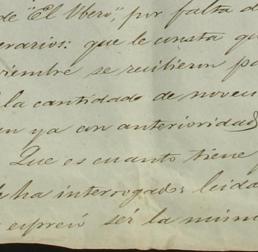 de "El Ubero", por falta d
erarios: que le consta qu
viembre se recitieron pa
la cantidade de noveci
en ya con anterioridad
Que es cuanto tiene
ha interrogado; leida
expresó ser la misma